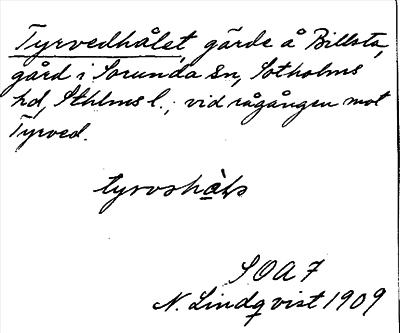 Tyrvedhålet, gärde å Billsta,
gård i Sorunda sn, Sotholms
hd, Sthlms l.; vid rågången mot
Tyrved.
SOA 7
N. Lindqvist 1909